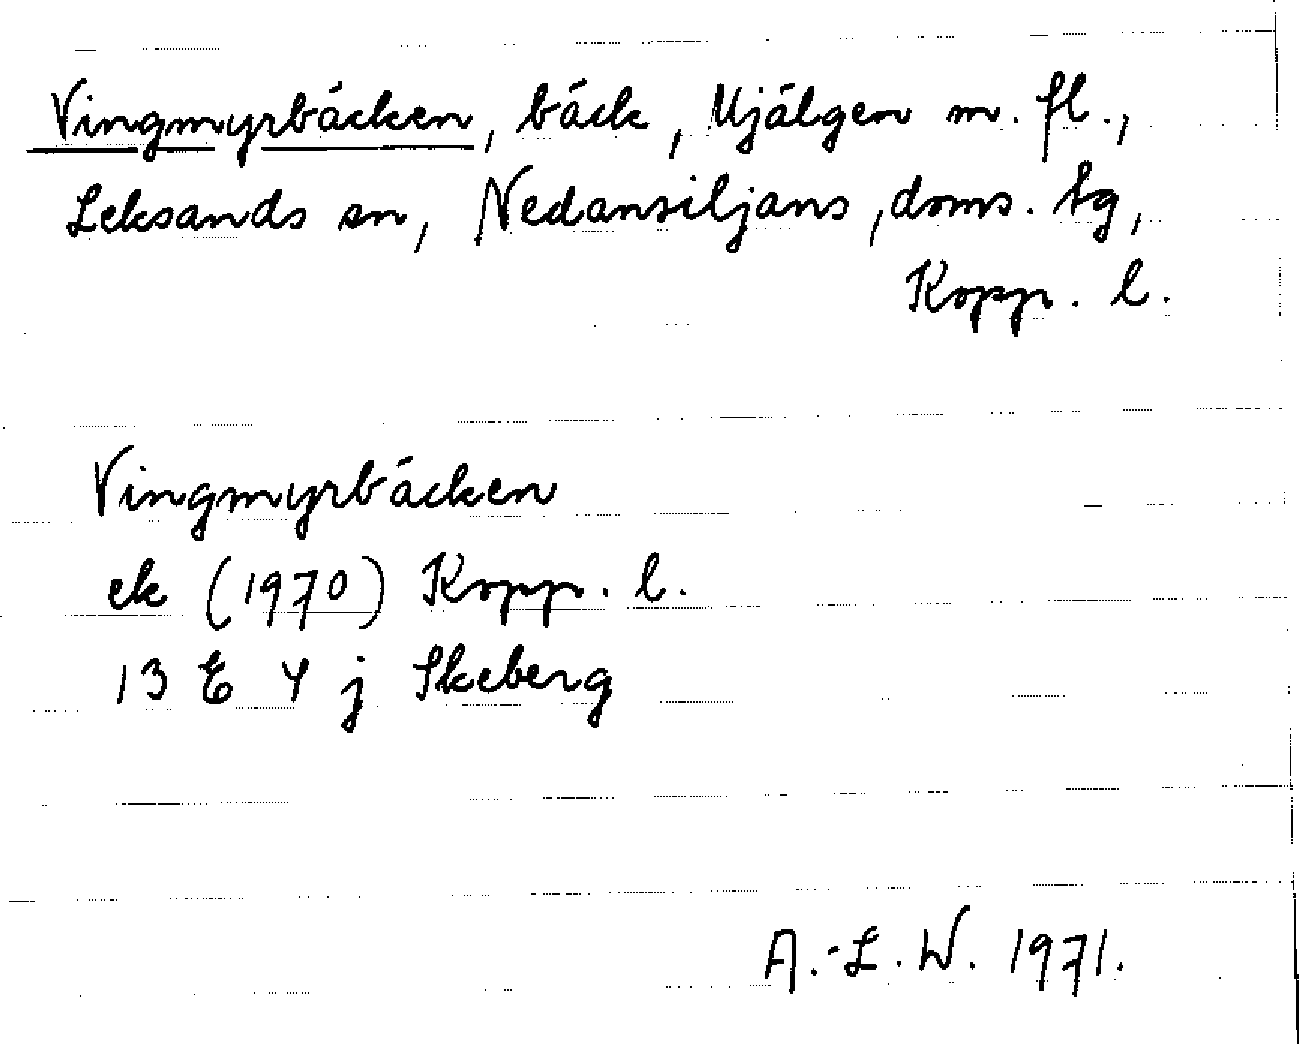 Vingmyrbäcken, bäck, Mjälgen m. fl.,
Leksands sn, Nedansiljans, doms. tg,
Kopp. l.
Vingmyrbäcken
ek (1970) Kopp. l.
13 E 4 j Skeberg
A.-L. W. 1971.